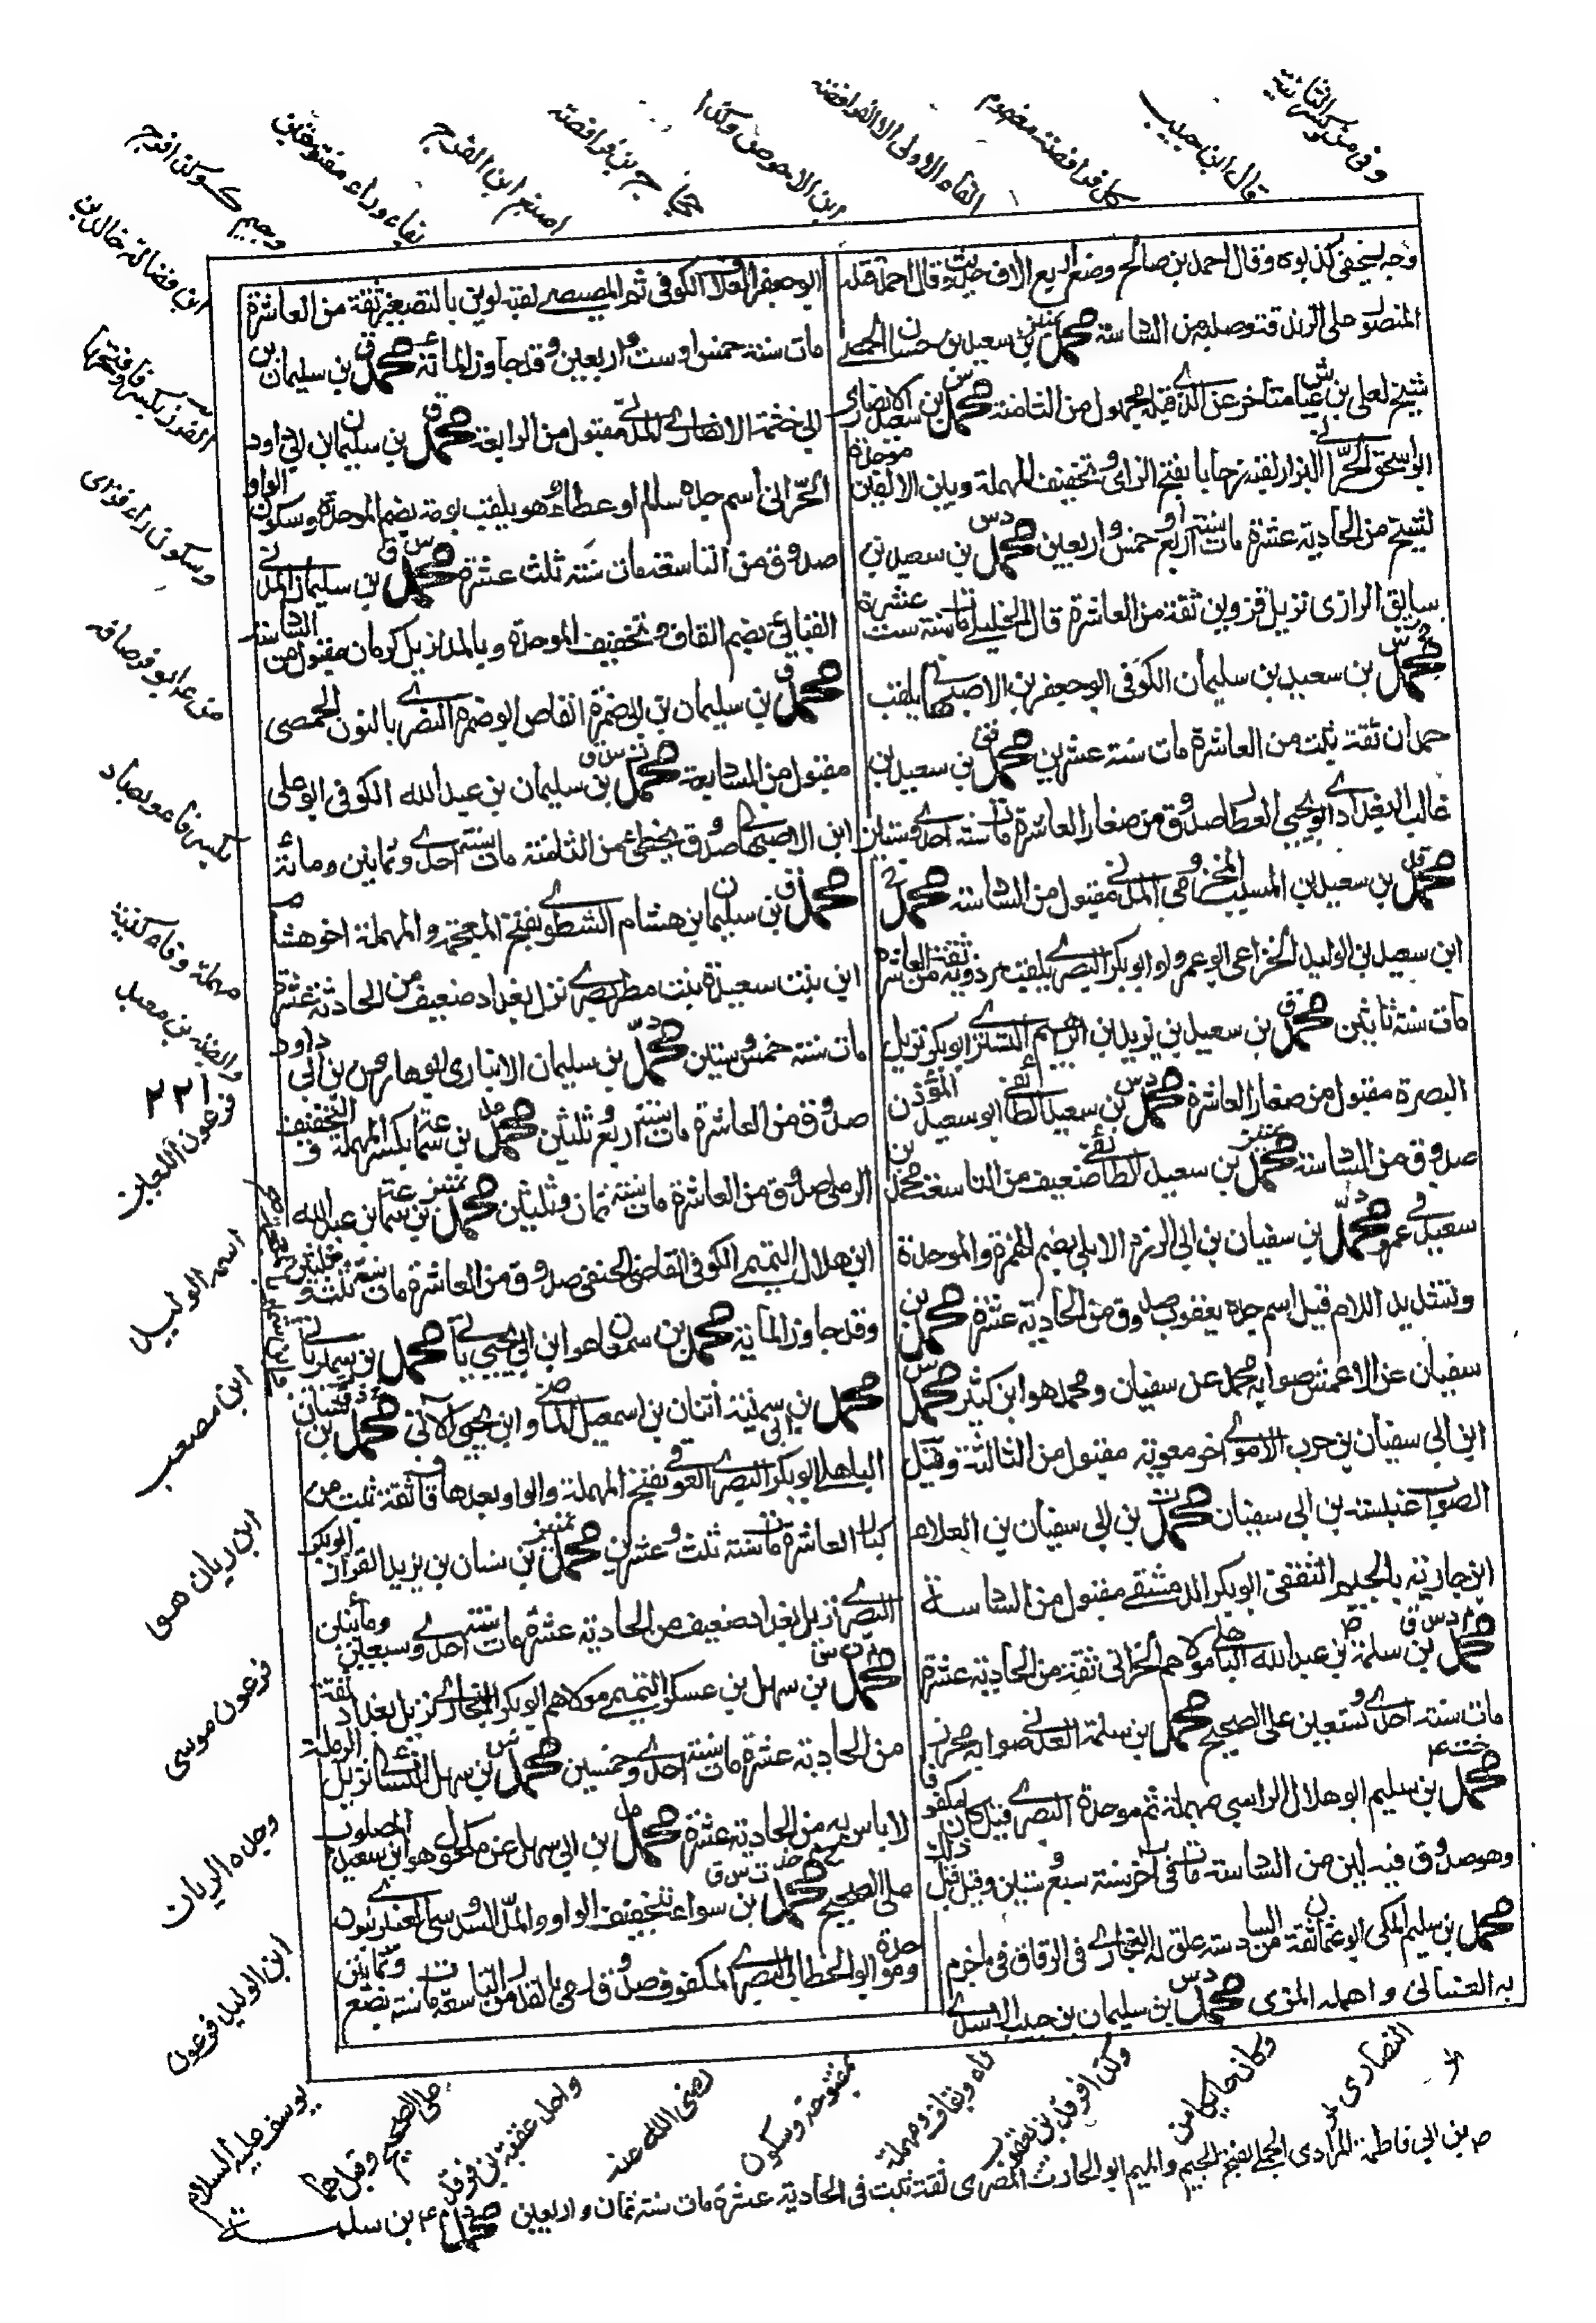 وفي مذكر كسر الثانية
قال ابن حبيب
كل فرافصة مضموم
الفاء الاولى الا الفرافصة
ابن الاحوص وكذا
حجاج بن فرافصة
اصبغ ابن الفرج
بفاء وراء مفتوحتين
وجيم كسوكن افرج
ابن فضالة خالد بن
وسكون راء فزاى
بكسر فاء وبصاد
مهملة وفاء كنية
والد بن معبد
٢٢١
فرعون اللعين
اسمه الوليد
ابن مصعب
ابن ريان هو
فرعون موسى
وجده الريان
ابن الوليد فرعون
يوسف عليه السلام
على الصحيح وقيل هما
واحد عقبة بن فرقد
رضى الله عنه
بمفتوحة وسكون
راء وبقاف ومهملة
وكذا فرقد بن يعقوب
وكان حايكا من
النصارى
وجه ليخفى كذبوه وقال احمد بن صالح وضع اربع الاف حديث وقال احمد قتله
المنصور على الزندقة وصلبه من السادسة محمد بن سعيد بن حسان الحمصے
شيخ لعلى بن عياش متأخر عن الذى قبله مجهول من الثامنة محمد بن سعد الانصارى
ابو اسحق الحرانے البزار لقبه زحايا بفتح الزاى وتخفيف المهملة وبين الالفين موحدة
لشيخ من الحادية عشرة مات سنة اربع او خمس واربعين محمد بن سعيد بن
سابق الرازى نزيل قزوين ثقة من العاشرة قال الخليلے مات سنة ست عشرة
محمد بن سعيد بن سليمان الكوفى ابو جعفر بن الاصبهانے يلقب
حمدان ثقة ثبت من العاشرة مات سنة عشرين محمد بن سعيد بن
غالب البغدادے ابو يحيى العطار صدوق من صغار العاشرة مات سنة احدے وستين
محمد بن سعيد بن المسيب المخزومى المدنے مقبول من السادسة محمد
ابن سعيد بن الوليد الخزاعى ابو عمرو او ابو بكر البصرے يلقب مردويه ثقة من العاشرة
مات سنة ثلثين محمد بن سعيد بن يزيد بن ابراهيم التسترے ابو بكر نزيل
البصرة مقبول من صغار العاشرة محمد بن سعيد الطائفى ابو سعيد المؤذن
صدوق من السادسة محمد بن سعيد الطائفى ضعيف من التاسعة محمد بن
سعيد فے عمرو محمد بن سفيان بن ابى الزرد الابلى بضم الهمزة والموحدة
وتشديد اللام قيل اسم جده يعقوب صدوق من الحادية عشرة محمد بن
سفيان عن الاعمش صوابه محمد عن سفيان ومحمد هو ابن كثير محمد
ابن ابى سفيان بن حرب الاموے اخو معوية مقبول من الثالثة وقيل
الصواب عنبسة بن ابى سفيان محمد بن ابى سفيان بن العلاء
ابن جارية بالجيم الثقفى ابو بكر الدمشقے مقبول من السادسة
محمد بن سلمة بن عبد الله الباهلے مولاهم الحرانى ثقة من الحادية عشرة
مات سنة احدے وتسعين على الصحيح محمد بن سلمة العدنے صوابه محرز
محمد بن سليم ابو هلال الراسبى بمهملة ثم موحدة البصرے قيل كان مكفوفا
وهو صدوق فيه لين من السادسة مات فى اخر سنة سبع وستين وقيل قبل ذلك
محمد بن سليم المكى ابو عثمان ثقة من السادسة علق له البخارے فى الرقاق فى ما جزم
به الغسانى واهمله المزى محمد بن سليمان بن حبيب الاسدے
ابو جعفر العلاف الكوفى ثم المصيصے لقبه لوين بالتصغير ثقة من العاشرة
مات سنة خمس او ست واربعين وقد جاوز المائة محمد بن سليمان بن
ابى حثمة الانصارے المدنے مقبول من الرابعة محمد بن سليمان بن ابى داود
الحرانى اسم جده سالم او عطاء وهو يلقب بومة بضم الموحدة وسكون الواو
صدوق من التاسعة مات سنة ثلث عشرة محمد بن سليمان المدنے
القبائے بضم القاف وتخفيف الموحدة وبالمد نزيل كرمان مقبول من السادسة
محمد بن سليمان بن ابى ضمرة القاص ابو ضمرة النصرے بالنون الحمصى
مقبول من السابعة محمد بن سليمان بن عبد الله الكوفى ابو على
ابن الاصبهانے صدوق يخطئ من الثامنة مات سنة احدے وثمانين ومائة
محمد بن سليمان بن هشام الشطوے بفتح المعجمة والمهملة اخو هشام
ابن بنت سعيدة بنت مطر بصرے نزل بغداد ضعيف من الحادية عشرة
مات سنة خمس وستين محمد بن سليمان الانبارى ابو هارون بن ابى داود
صدوق من العاشرة مات سنة اربع وثلثين محمد بن سماعة بكسر المهملة والتخفيف
الرملى صدوق من العاشرة مات سنة ثمان وثلثين محمد بن سماعة بن عبد الله
ابن هلال التميمے الكوفى القاضى الحنفى صدوق من العاشرة مات سنة ثلث وثلثين
وقد جاوز المائة محمد بن سمعان هو ابن ابى يحيى ياتے محمد بن سمير ياتے
محمد بن ابى سمينة اثنان بن اسمعيل الماضے وابن يحيى الآتى محمد بن سنان
الباهلے ابو بكر البصرے العوقے بفتح المهملة والواو بعدها قاف ثقة ثبت من
كبار العاشرة مات سنة ثلث وعشرين محمد بن سنان بن يزيد القزاز ابو بكر
البصرے نزيل بغداد ضعيف من الحادية عشرة مات سنة احدے وسبعين ومأتين
محمد بن سهل بن عسكر التميمے مولاهم ابو بكر البخارے نزيل بغداد ثقة
من الحادية عشرة مات سنة احدے وخمسين محمد بن سهل النسائے نزيل الرملة
لا باس به من الحادية عشرة محمد بن ابى سهل عن مكحول هو ابن سعيد المصلوب
على الصحيح محمد بن سواء بتخفيف الواو والمد السدوسى العنبرے بنون
وموحدة ابو الخطاب البصرے المكفوف صدوق رمى بالقدر من التاسعة مات سنة بضع وثمانين
محمد بن سلمة
بن ابى فاطمة المرادى الجملے بفتح الجيم والميم ابو الحارث المصرى ثقة ثبت فى الحادية عشرة مات سنة ثمان واربعين